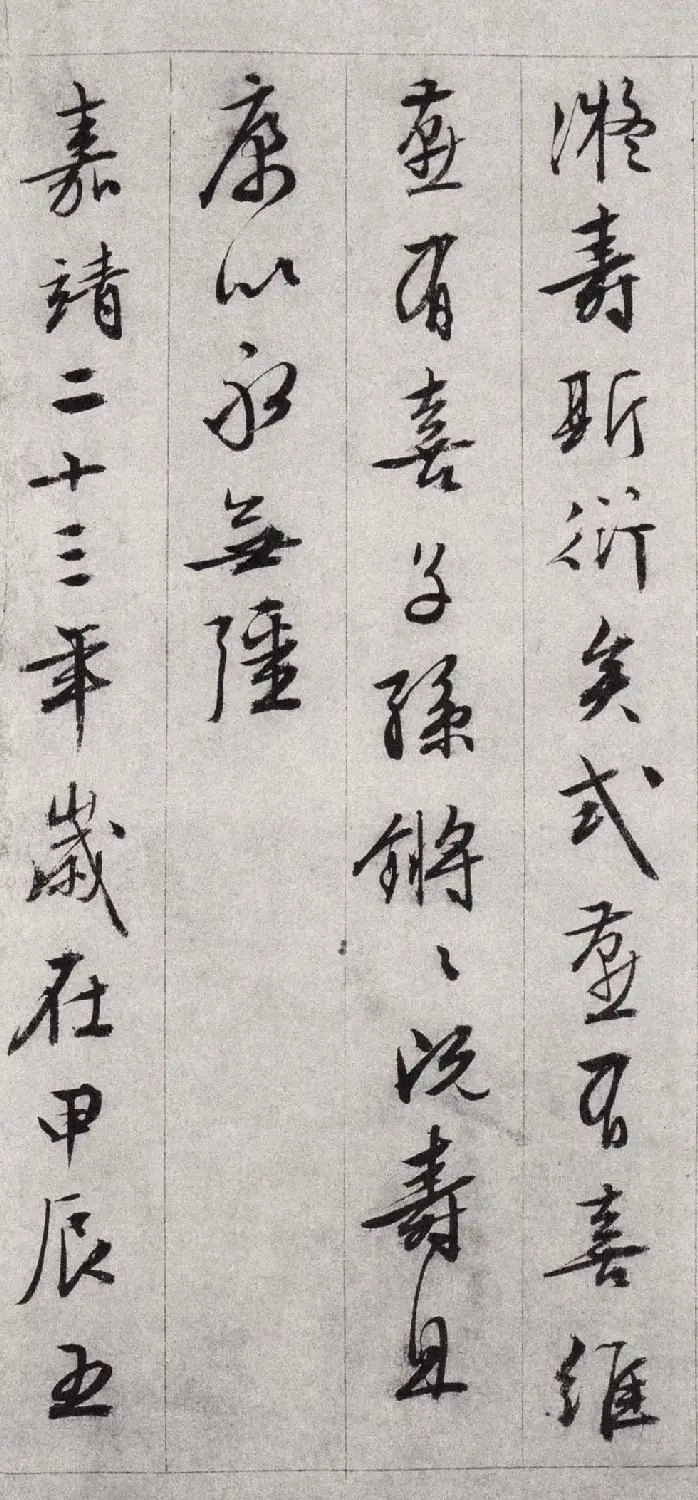 凝寿斯衍矣式燕有喜維
燕有喜子孫鏘〻既壽且
康以永無疆
嘉靖二十三年歲在甲辰五